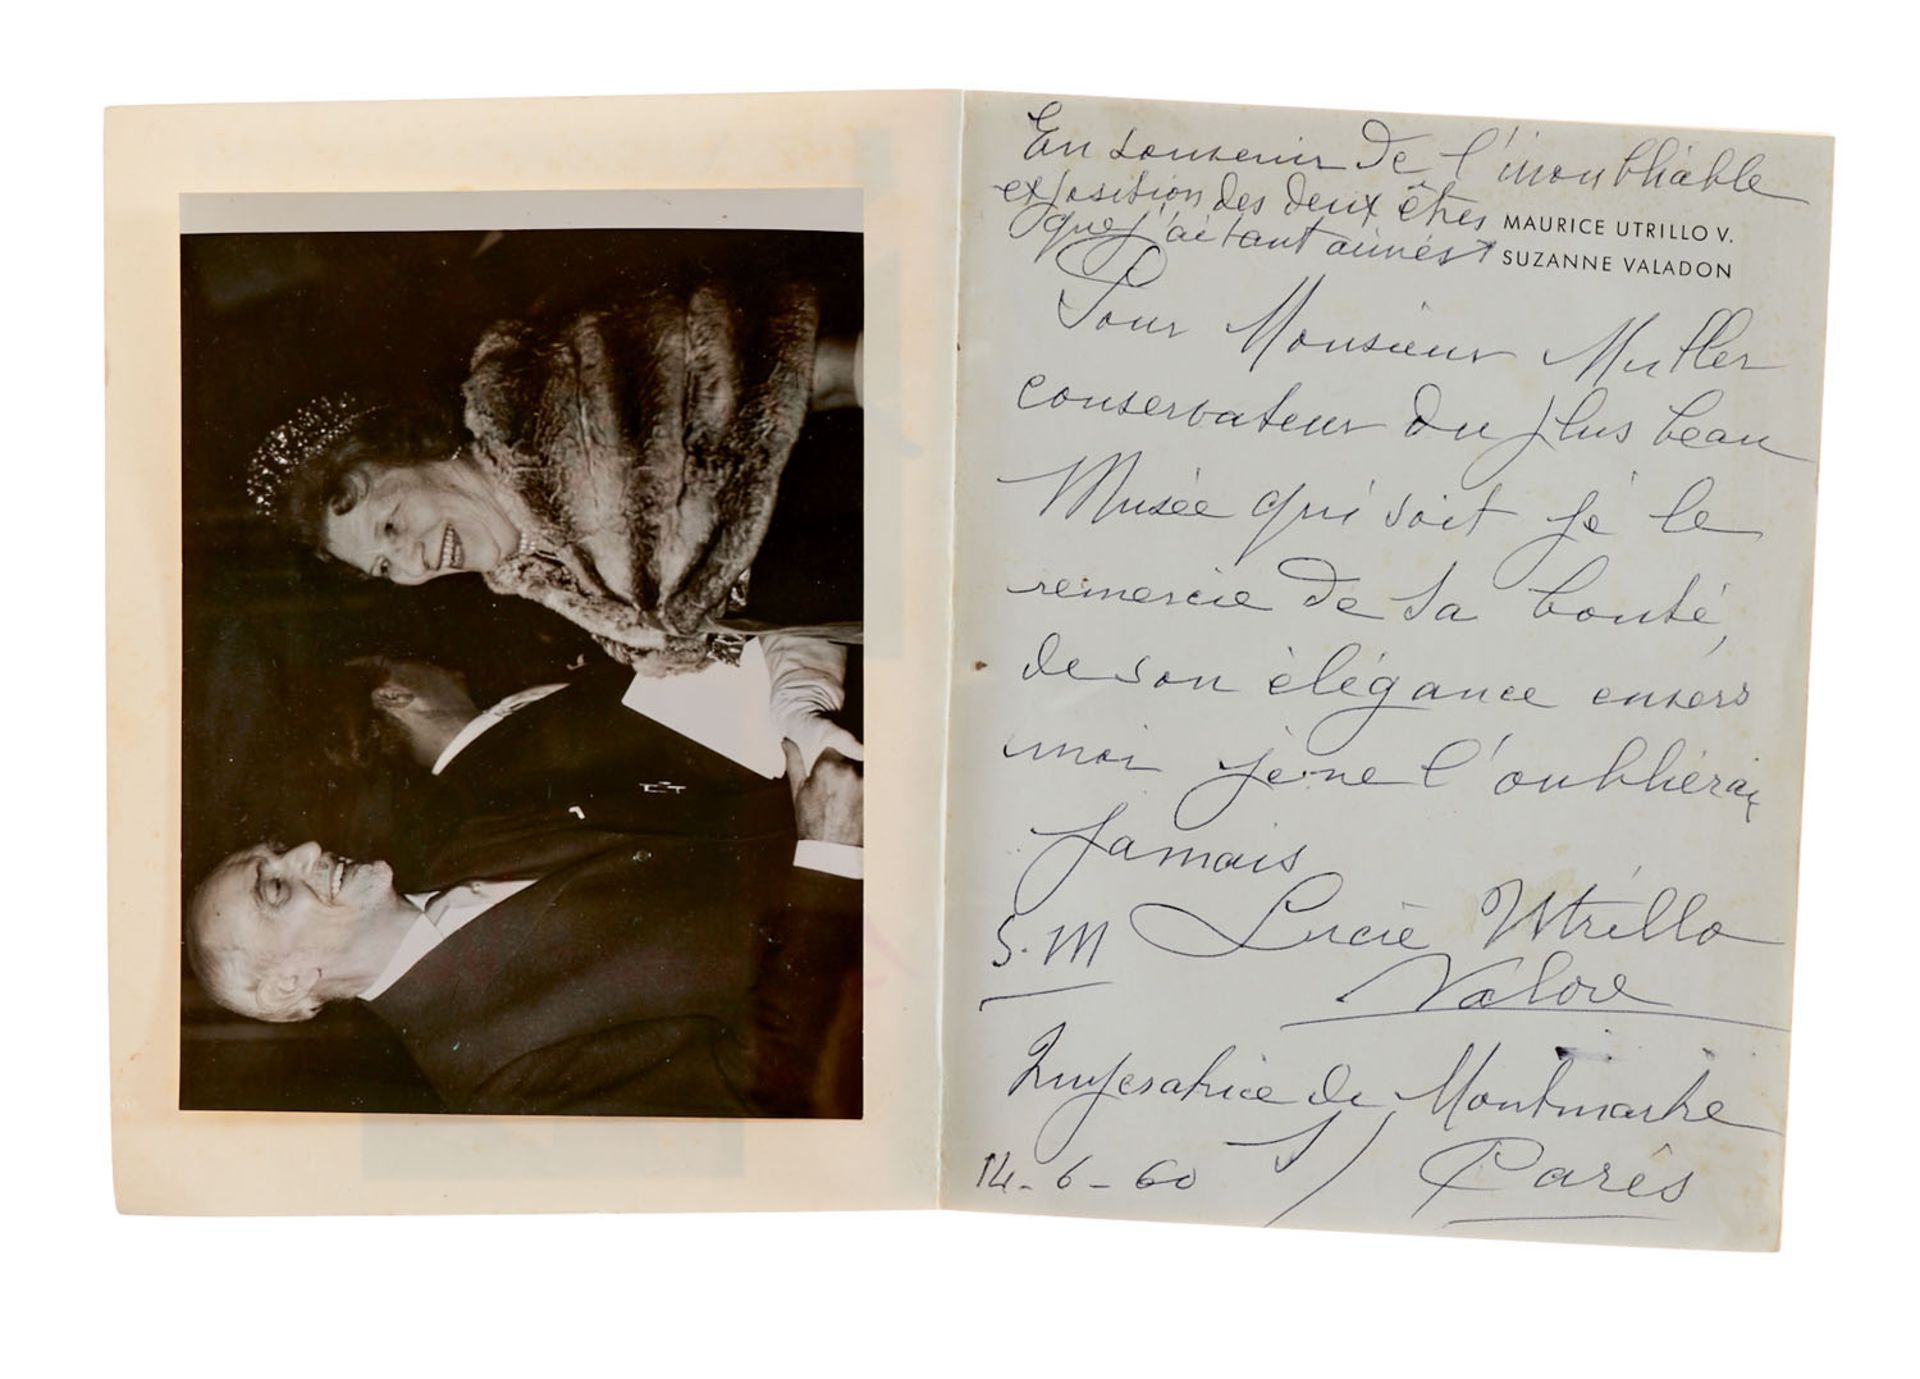 En souvenir de l'inoubliable
exposition des deux êtres
que j'ai tant aimés
MAURICE UTRILLO V.
SUZANNE VALADON
Pour Monsieur Muller
conservateur du plus beau
Musée qui soit je le
remercie de sa bonté,
de son élégance envers
moi je ne l'oublierai
Jamais
S. M Lucie Utrillo
Valore
Imperatrice de Montmartre
Paris
14-6-60